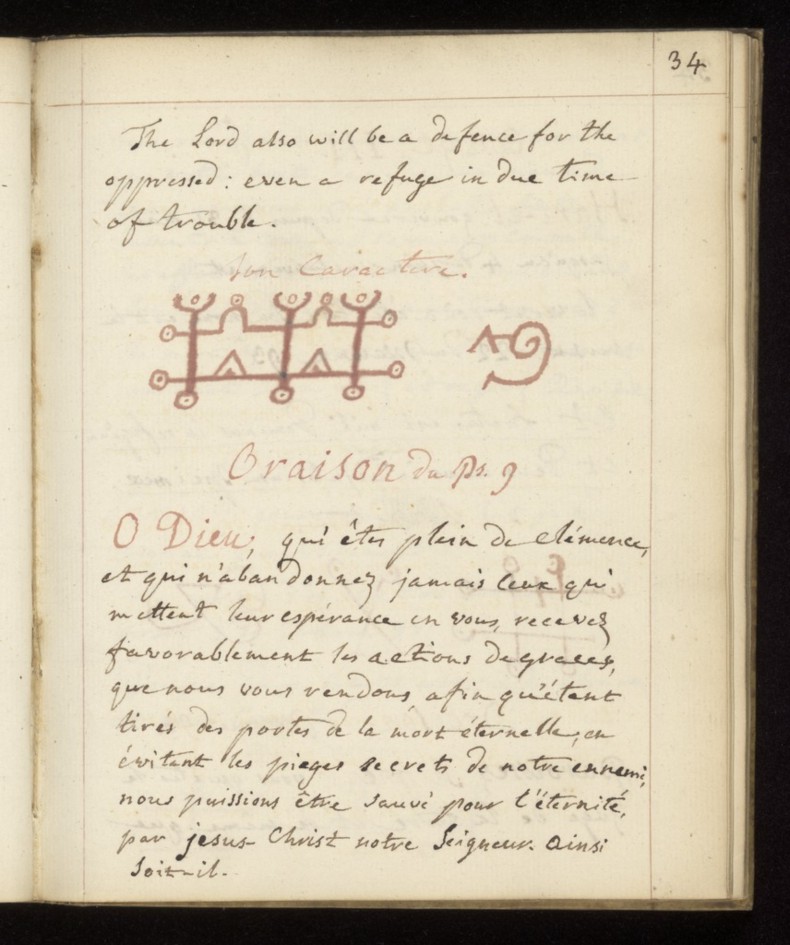 34
The Lord also will be a defence for the
oppressed: even a refuge in due time
of trouble.
Son Caractere.
Oraison du Ps. 9
O Dieu, qui êtes plein de clémence,
et qui n'abandonnez jamais ceux qui
mettent leur espérance en vous, recevez
favorablement les actions de graces,
que nous vous rendons, afin qu'étant
tirés des portes de la mort éternelle, en
évitant les pieges secrets de notre ennemi,
nous puissions être sauvé pour l'éternité,
par jesus Christ notre Seigneur. ainsi
soit-il.